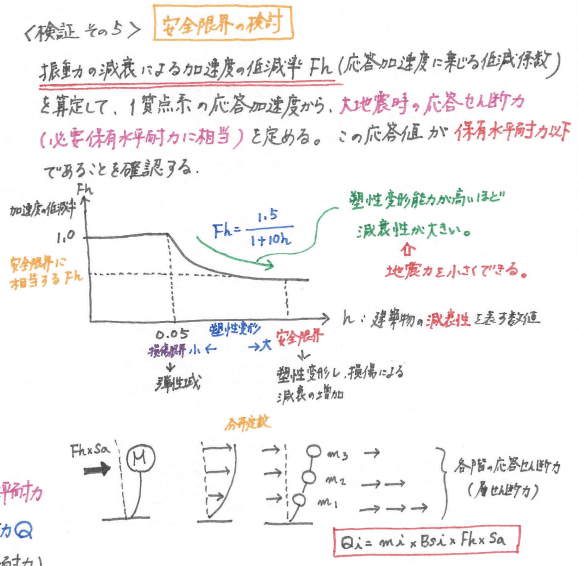 <検証 その5> 安全限界の検討
振動の減衰による加速度の低減率 Fh (応答加速度に乗じる低減係数)
を算定して、1質点系の応答加速度から、大地震時の応答せん断力
(必要保有水平耐力に相当) を定める。この応答値が 保有水平耐力以下
であることを確認する.
Fh
加速度の低減率
1.0
安全限界に
相当するFh
Fh = 1.5 / 1+10h
塑性変形能力が高いほど
減衰性が大きい。
地震力を小さくできる。
h : 建築物の減衰性を表す数値
0.05
損傷限界
弾性域
塑性変形
小 ← → 大
安全限界
塑性変形し、損傷による
減衰の増加
分布定数
Fh×Sa
M
m3
m2
m1
各階の応答せん断力
(層せん断力)
Qi = mi × Bsi × Fh × Sa
耐力
力Q
耐力)